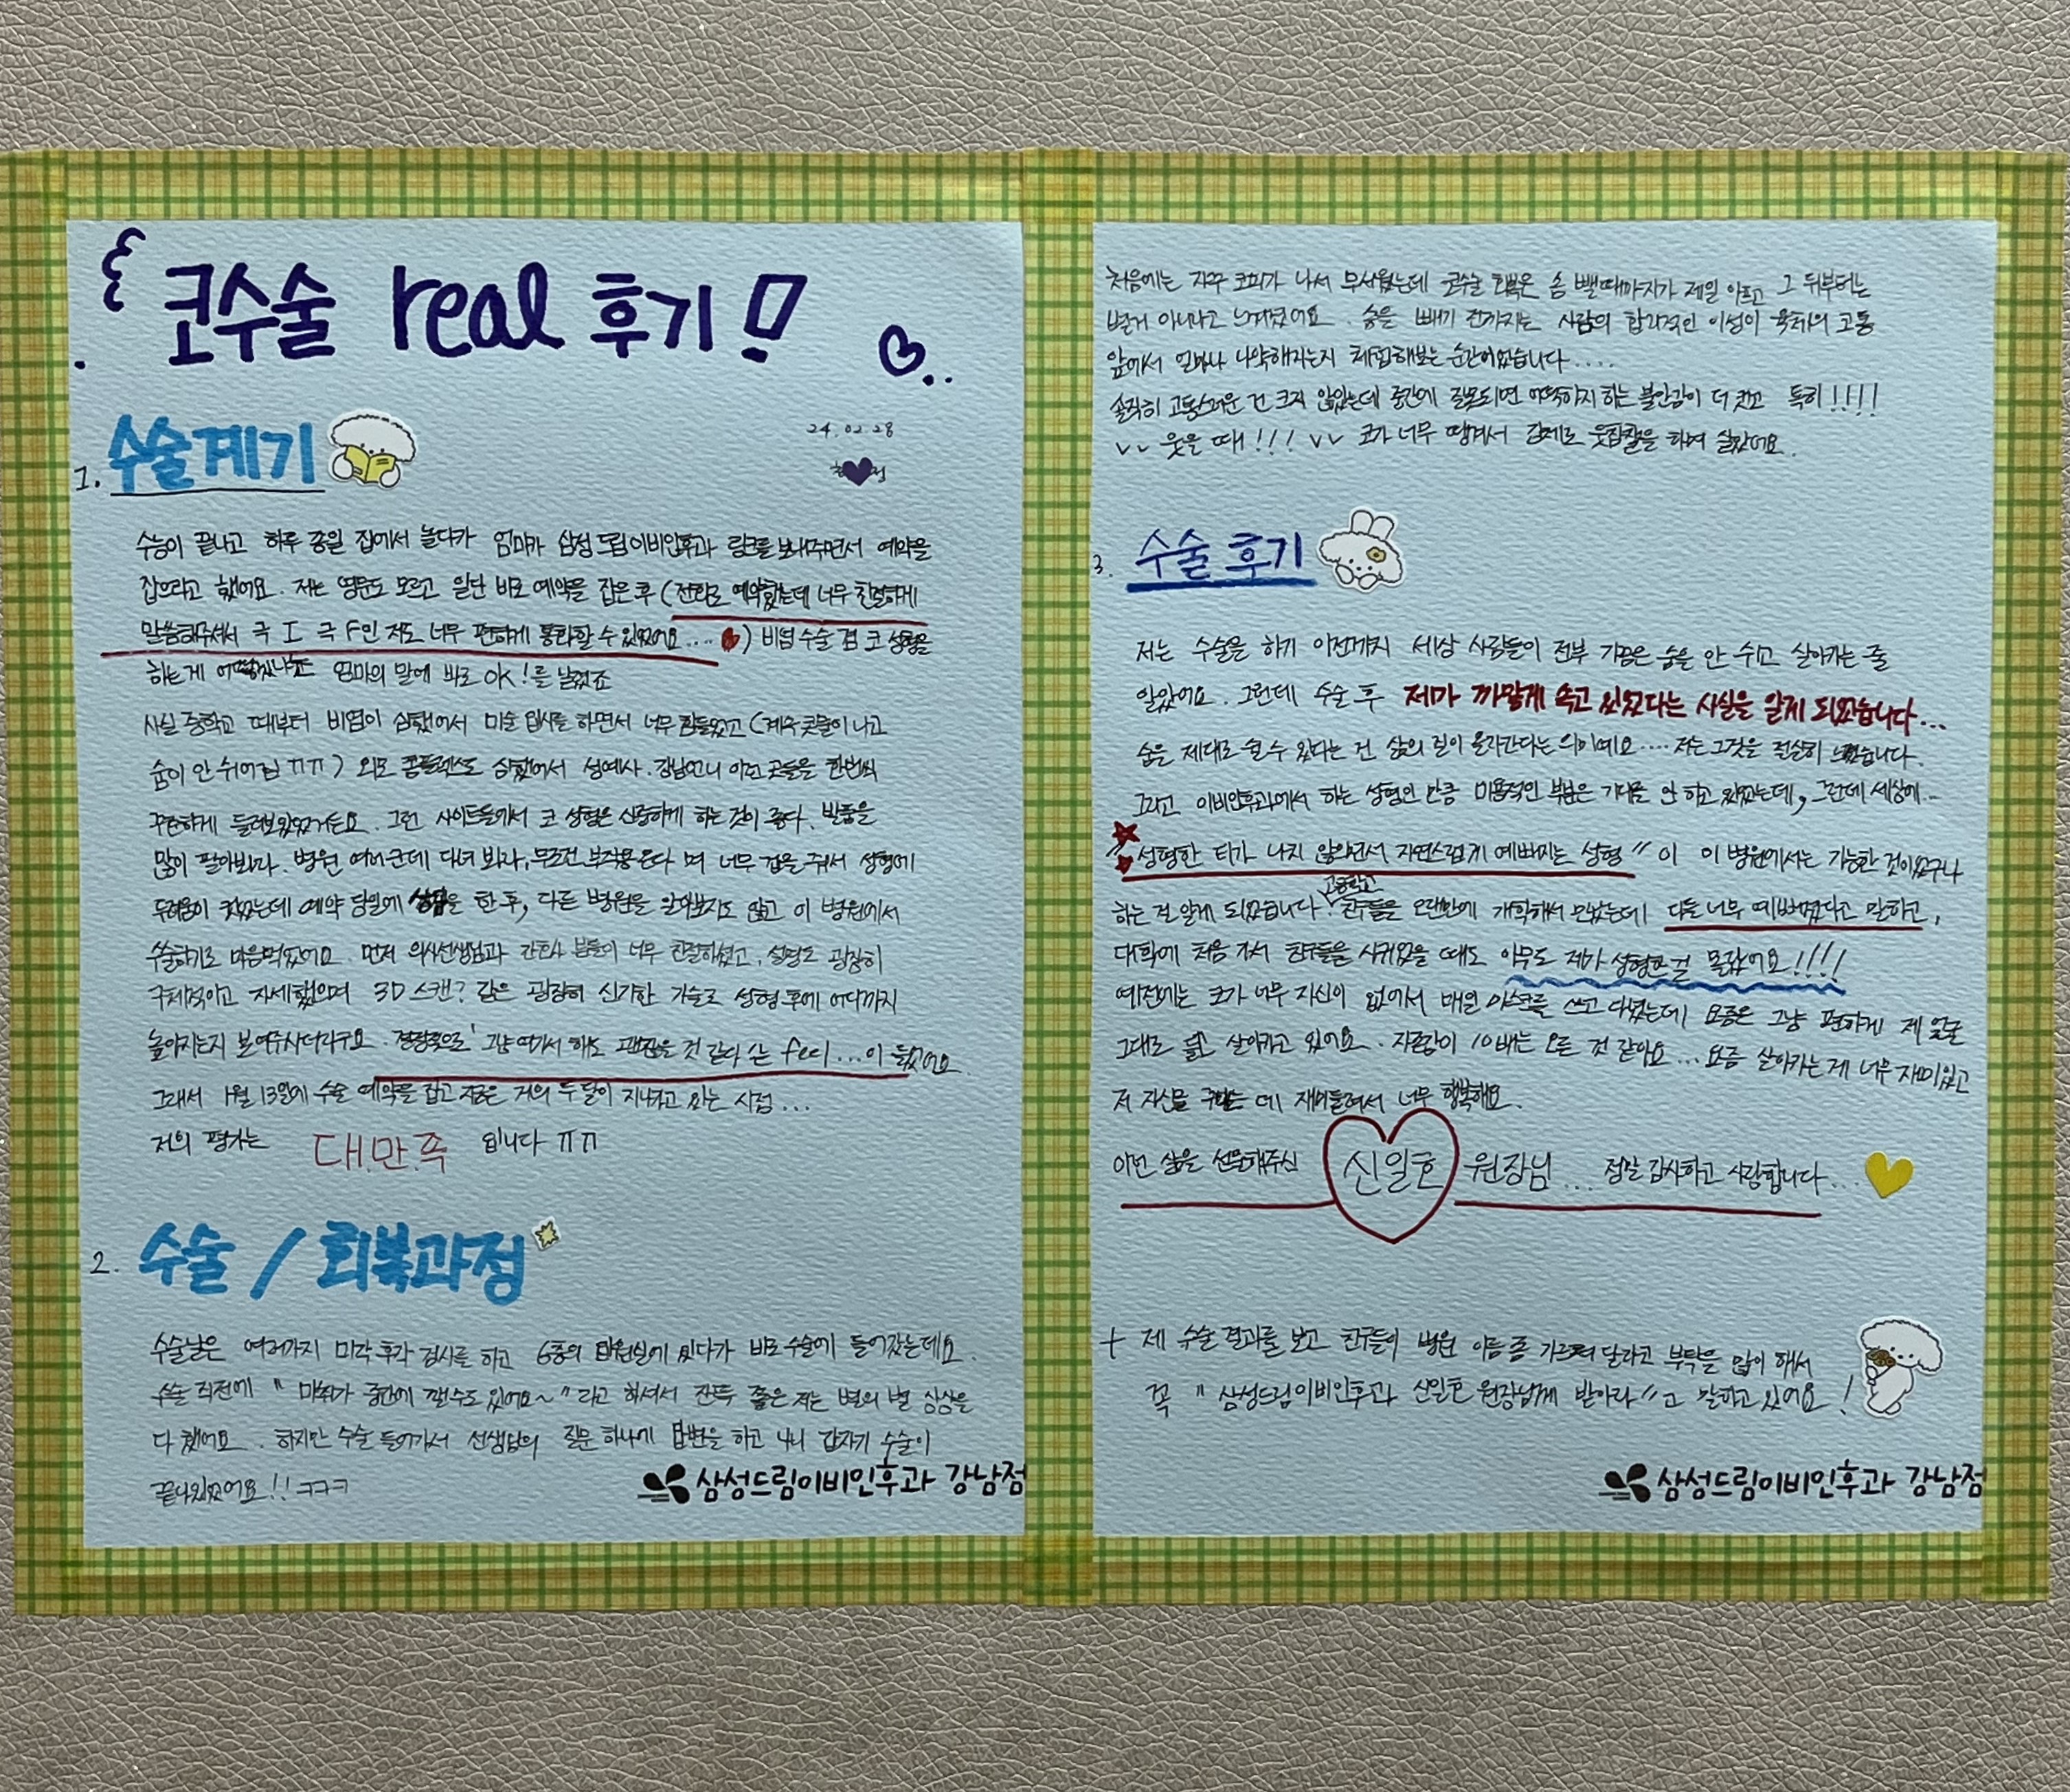 코수술 real 후기!!
1. 수술계기
24.02.28
수능이 끝나고 하루 종일 집에서 놀다가 엄마가 삼성드림이비인후과 링크를 보내주면서 예약을
잡으라고 했어요. 저는 영문도 모르고 일단 바로 예약을 잡은 후 (전화로 예약했는데 너무 친절하게
말씀해주셔서 극 I 극 F인 저도 너무 편하게 통화할 수 있었어요....) 비염 수술 겸 코 성형을
하는게 어떻겠냐는 엄마의 말에 바로 OK!를 날렸죠
사실 중학교 때부터 비염이 심했어서 미술 입시를 하면서 너무 힘들었고 (계속 콧물이 나고
숨이 안 쉬어짐 ㅠㅠ) 외모 콤플렉스도 심했어서 성예사. 강남언니 이런 곳들을 한번씩
꾸준하게 들려보았었거든요. 그런 사이트들에서 코 성형은 신중하게 하는 것이 좋다. 발품을
많이 팔아봐라. 병원 여러군데 다녀 봐라, 무조건 부작용 온다 며 너무 겁을 줘서 성형에
두려움이 컸었는데 예약 당일에 상담을 한 후, 다른 병원을 알아보지도 않고 이 병원에서
수술하기로 마음먹었어요. 먼저 의사선생님과 간호사 분들이 너무 친절하셨고, 설명도 굉장히
구체적이고 자세했으며 3D 스캔? 같은 굉장히 신기한 기술로 성형 후에 어디까지
높아지는지 보여주시더라구요. 결정적으로 '그냥 여기서 해도 괜찮을 것 같다' 는 feel...이 들었어요.
그래서 1월 13일에 수술 예약을 잡고 지금은 거의 두 달이 지나가고 있는 시점...
저의 평가는 대.만.족 입니다 ㅠㅠ
2. 수술 / 회복과정
수술날은 여러가지 미각 후각 검사를 하고 6층의 입원실에 있다가 바로 수술에 들어갔는데요.
수술 직전에 "마취가 중간에 깰수도 있어요~"라고 하셔서 잔뜩 쫄은 저는 별의 별 상상을
다 했어요. 하지만 수술 들어가서 선생님의 질문 하나에 답변을 하고 나니 갑자기 수술이
끝나있었어요!! ㅋㅋㅋ
삼성드림이비인후과 강남점
처음에는 자꾸 코피가 나서 무서웠는데 코수술 회복은 솜 뺄때까지가 제일 아프고 그 뒤부터는
별게 아니라고 느껴졌어요. 솜을 빼기 전까지는 사람의 합리적인 이성이 육체의 고통
앞에서 얼마나 나약해지는지 체험해보는 순간이었습니다....
솔직히 고통스러운 건 크지 않았는데 중간에 잘못되면 어떡하지 하는 불안감이 더 컸고 특히!!!!
VV 웃을 때!!! VV 코가 너무 땡겨서 강제로 웃참챌을 하며 살았어요.
3. 수술 후기
저는 수술을 하기 이전까지 세상 사람들이 전부 가끔은 숨을 안 쉬고 살아가는 줄
알았어요. 그런데 수술 후 제가 까맣게 속고 있었다는 사실을 알게 되었습니다...
숨을 제대로 쉴 수 있다는 건 삶의 질이 올라간다는 의미예요.... 저는 그것을 절실히 느꼈습니다.
그리고 이비인후과에서 하는 성형인 만큼 미용적인 부분은 기대를 안 하고 있었는데, 그런데 세상에..
"성형한 티가 나지 않으면서 자연스럽게 예뻐지는 성형"이 이 병원에서는 가능한 것이었구나
하는 걸 알게 되었습니다. 고등학교 친구들을 오랜만에 개학해서 만났는데 다들 너무 예뻐졌다고 말하고,
대학에 처음 가서 친구들을 사귀었을 때도 아무도 제가 성형한걸 몰랐어요!!!!
예전에는 코가 너무 자신이 없어서 매일 마스크를 쓰고 다녔는데 요즘은 그냥 편하게 제 얼굴
그대로 들고 살아가고 있어요. 자존감이 10배는 오른 것 같아요... 요즘 살아가는게 너무 재미있고
저 자신을 꾸미는 데 재미들려서 너무 행복해요.
이런 삶을 선물해주신 신일호 원장님... 정말 감사하고 사랑합니다...
+ 제 수술 결과를 보고 친구들이 병원 이름 좀 가르쳐 달라고 부탁을 많이 해서
꼭 "삼성드림이비인후과 신일호 원장님께 받아라"고 말하고 있어요!
삼성드림이비인후과 강남점